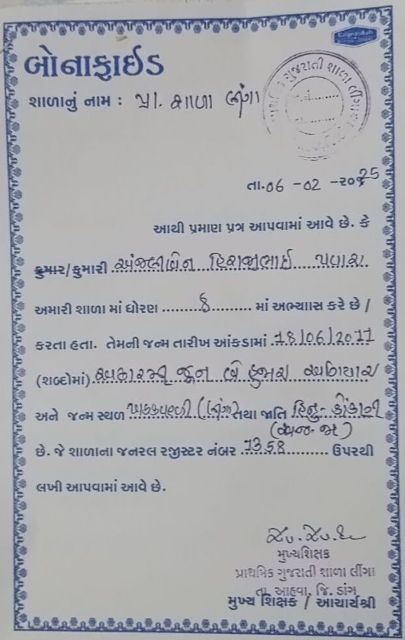 બોનાફાઈડ
શાળાનું નામ : પ્રા. શાળા લીંગા
પ્રાથમિક ગુજરાતી શાળા લીંગા
તા.06 -02 -૨૦૨25
આથી પ્રમાણ પત્ર આપવામાં આવે છે. કે
કુમાર/કુમારી અંજલીબેન હિરાજીભાઈ પવાર
અમારી શાળા માં ધોરણ ......... ૬ ......... માં અભ્યાસ કરે છે /
કરતા હતા. તેમની જન્મ તારીખ આંકડામાં .18/06/2011
(શબ્દોમાં) અઢારમી જૂન બે હજાર અગિયાર
અને જન્મ સ્થળ (લીંગા) તથા જાતિ હિન્દુ- કોંકણી
(અ.જ.જા)
છે. જે શાળાના જનરલ રજીસ્ટર નંબર .1358......... ઉપરથી
લખી આપવામાં આવે છે.
મુખ્યશિક્ષક
પ્રાથમિક ગુજરાતી શાળા લીંગા
તા. આહવા, જિ. ડાંગ
મુખ્ય શિક્ષક / આચાર્યશ્રી